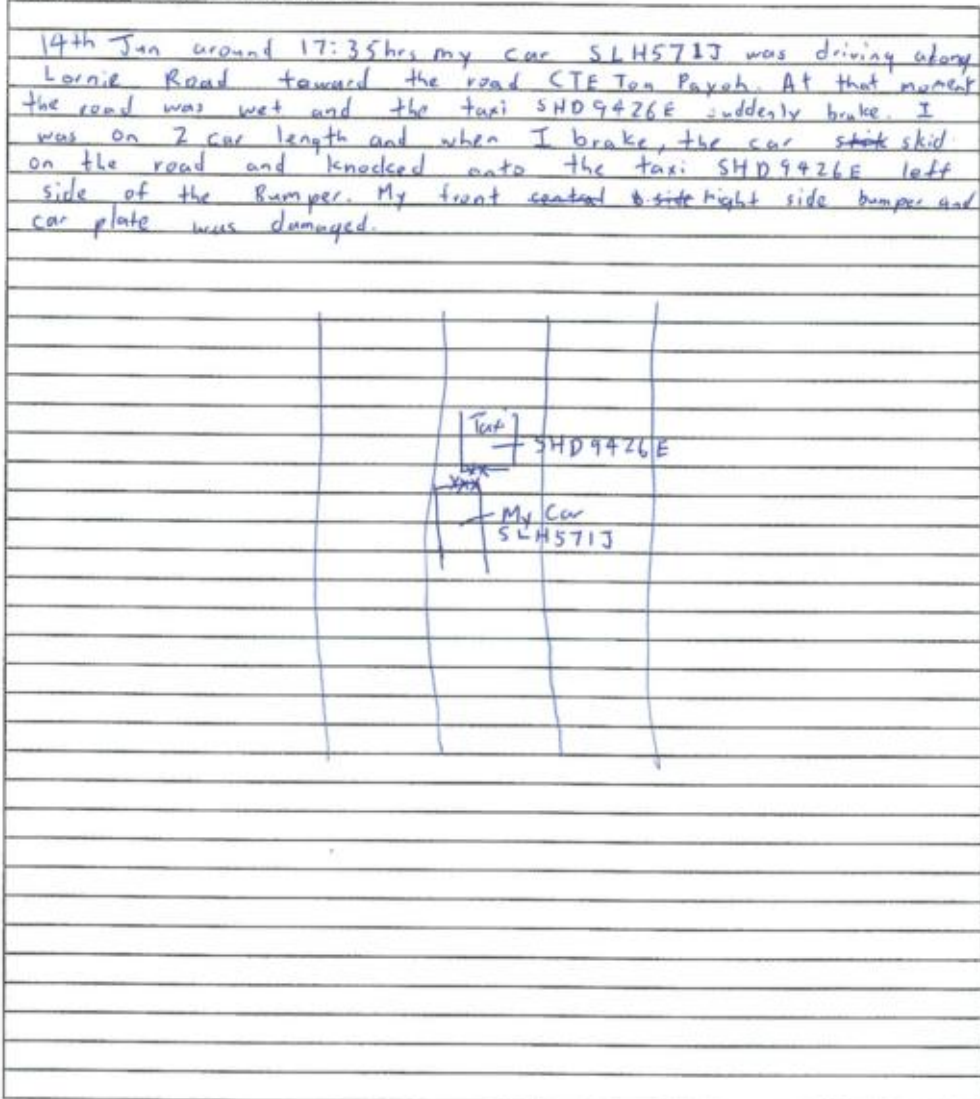 14th Jan around 17:35hrs my car SLH571J was driving along
Lornie Road toward the road CTE Toa Payoh. At that moment
the road was wet and the taxi SHD9426E suddenly brake. I
was on 2 car length and when I brake, the car skid
on the road and knocked onto the taxi SHD9426E left
side of the Bumper. My front right side bumper and
car plate was damaged.
Taxi
SHD9426E
My Car
SLH571J